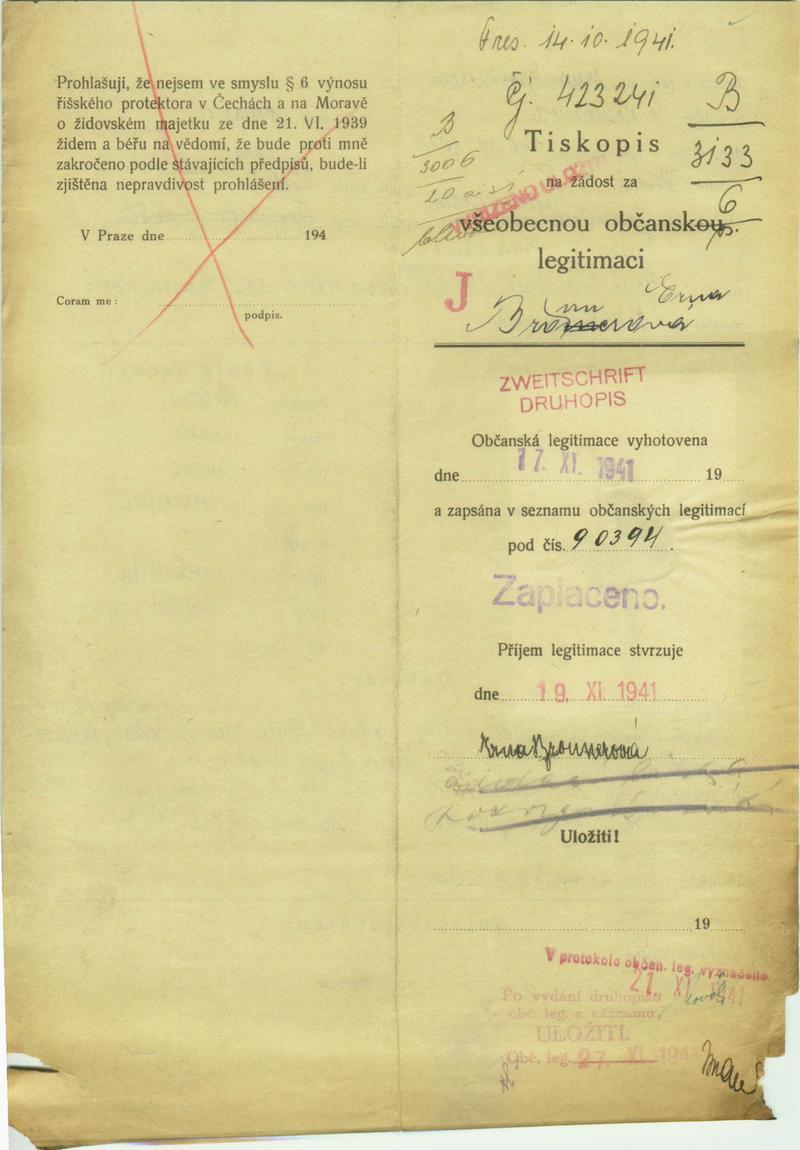 Prohlašuji, že nejsem ve smyslu § 6 výnosu
říšského protektora v Čechách a na Moravě
o židovském majetku ze dne 21. VI. 1939
židem a béřu na vědomí, že bude proti mně
zakročeno podle stávajících předpisů, bude-li
zjištěna nepravdivost prohlášení.
V Praze dne 194
Coram me :
podpis.
Pres. 14. 10. 1941.
Čj. 423241
B
3133
6
B
3006
Tiskopis
na žádost za
všeobecnou občanskou
legitimaci
J
Erna
ZWEITSCHRIFT
DRUHOPIS
Občanská legitimace vyhotovena
dne 17. XI. 1941 19
a zapsána v seznamu občanských legitimací
pod čís. 90394.
Zaplaceno.
Příjem legitimace stvrzuje
dne 19. XI. 1941
Erna
Uložiti!
19
V protokole občan. leg. vyznačeno
21. XI. 1941
Po vydání druhopisu
obč. leg. a záznamu
ULOŽITI.
Obč. leg. 27. XI. 1941